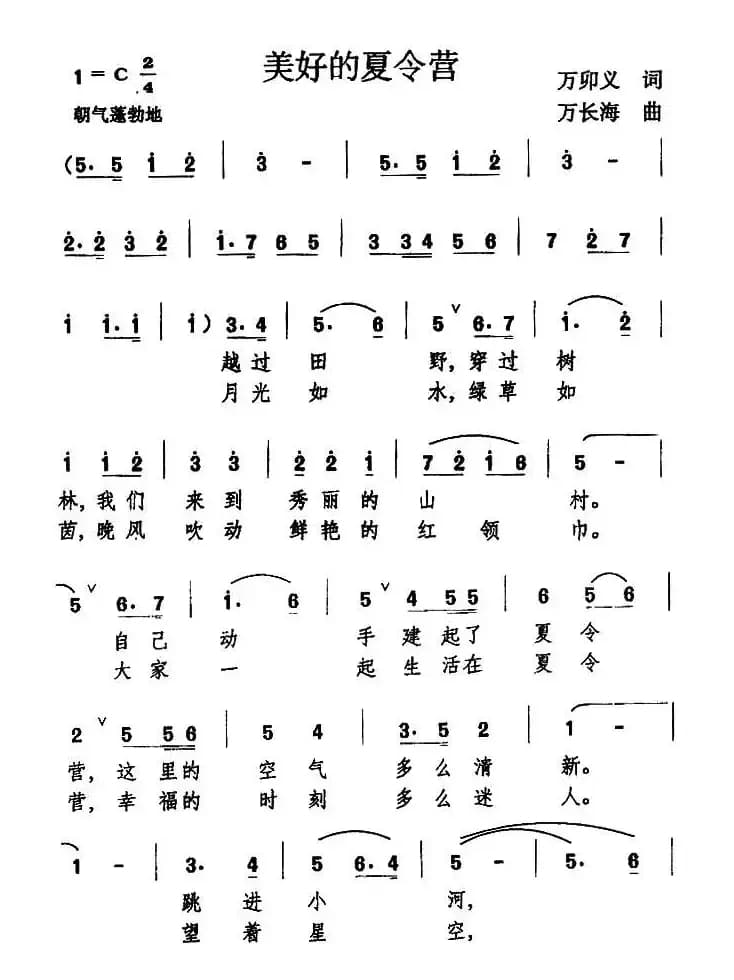 美好的夏令营
1=C 2/4
万卯义 词
朝气蓬勃地
万长海 曲
(5·5 i 2 | 3 - | 5·5 i 2 | 3 - |
2·2 3 2 | i·7 6 5 | 3 34 5 6 | 7 2 7 |
i i·i | i) 3·4 | 5· 6 | 5 ∨ 6·7 | i· 2 |
越过田野,穿过树
月光如水,绿草如
i i 2 | 3 3 | 2 2 i | 7 2 i 6 | 5 - |
林,我们来到秀丽的山村。
茵,晚风吹动鲜艳的红领巾。
5 ∨ 6·7 | i· 6 | 5 ∨ 4 55 | 6 5 6 |
自己动手建起了夏令
大家一起生活在夏令
2 ∨ 5 56 | 5 4 | 3·5 2 | 1 - |
营,这里的空气多么清新。
营,幸福的时刻多么迷人。
1 - | 3· 4 | 5 6·4 | 5 - | 5· 6 |
跳进小河,
望着星空,